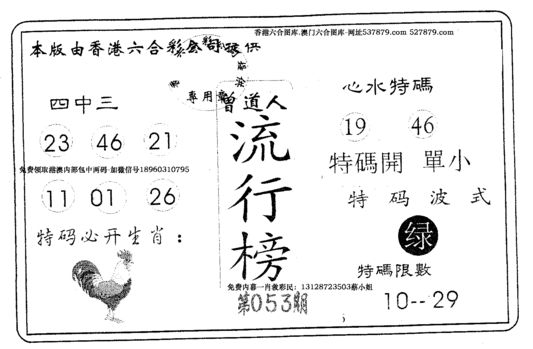 香港六合图库.澳门六合图库-网址537879.com 527879.com
本版由香港六合彩公司提供
專用章
四中三
23 46 21
免费领取港澳内部包中两码·加微信号18960310795
11 01 26
特码必开生肖：
曾道人
流行榜
免费内幕一肖救彩民：13128723503蔡小姐
第053期
心水特碼
19 46
特碼開 單小
特码波式
绿
特碼限數
10--29